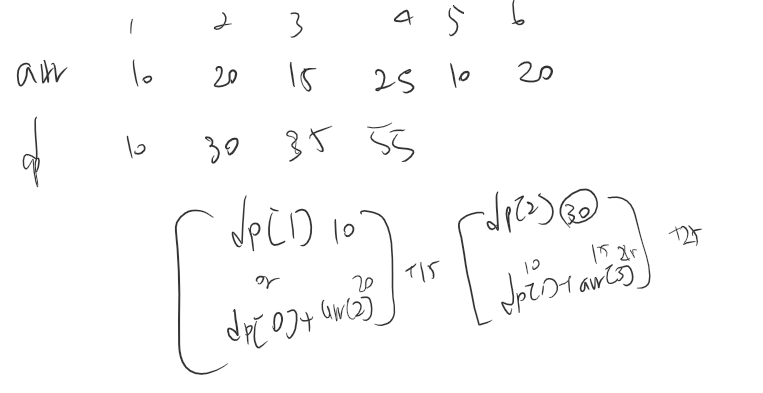 1 2 3 4 5 6
arr 10 20 15 25 10 20
dp 10 30 35 55
dp[1] 10
or
dp[0] + arr[2] 20
+15
dp[2] 30
dp[1] + arr[3] 10 15 25
+25